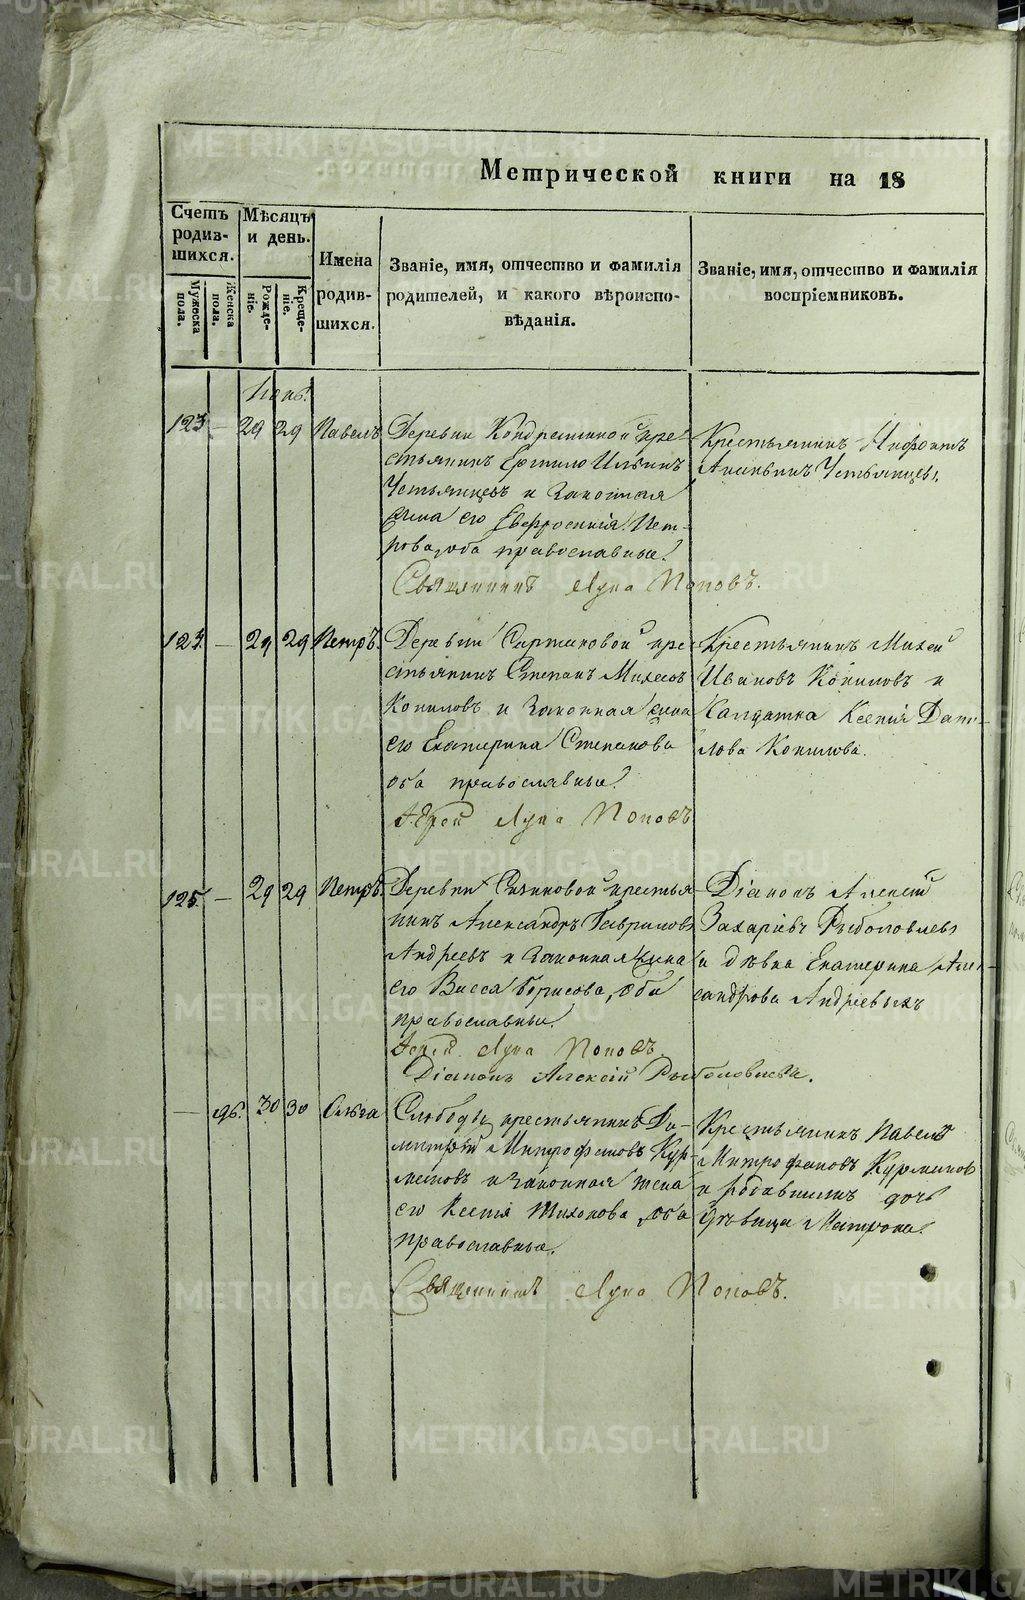 Метрической книги на 18
Счетъ родив-шихся.
Мужеска пола.
Женска пола.
Мѣсяцъ и день.
Рожде-ніе.
Креще-ніе.
Имена
родив-
шихся.
Званіе, имя, отчество и фамилія
родителей, и какого вѣроиспо-
вѣданія.
Званіе, имя, отчество и фамилія
воспріемниковъ.
123 — 29 29 Павелъ
Деревни кре-
стьянинъ Ильинъ
Устьянцевъ и законная
жена его Евфросинія Пет-
рова, оба православные.
Священникъ Лука Поповъ.
Крестьянинъ
Устьянцевъ
123. — 29 29 Петръ.
Деревни кре-
стьянинъ Степанъ Михеевъ
Копиловъ и законная жена
его Екатерина Степанова
оба православные.
Іерей Лука Поповъ
Крестьянинъ Михей
Ивановъ Копиловъ и
Солдатка Ксенія Дани-
лова Копилова.
125. — 29 29 Петръ.
Деревни крестья
нинъ Александръ Гавриловъ
Андреевъ и законная жена
его Васса Борисова, оба
православные.
Іерей Лука Поповъ
Діаконъ Алексій Рыболовлевъ.
Діаконъ Алексей
Захаріевъ Рыболовлевъ
и дѣвка Екатерина Алек-
сандрова Андреевыхъ
— 96. 30 30 Ольга
Слободы крестьянинъ Ди-
митрій Митрофановъ Кур-
мановъ и законная жена
его Ксенія Тихонова, оба
православные.
Священникъ Лука Поповъ.
Крестьянинъ Павелъ
Митрофановъ Курманов
и дочь
дѣвица Матрона.
METRIKI.GASO-URAL.RU